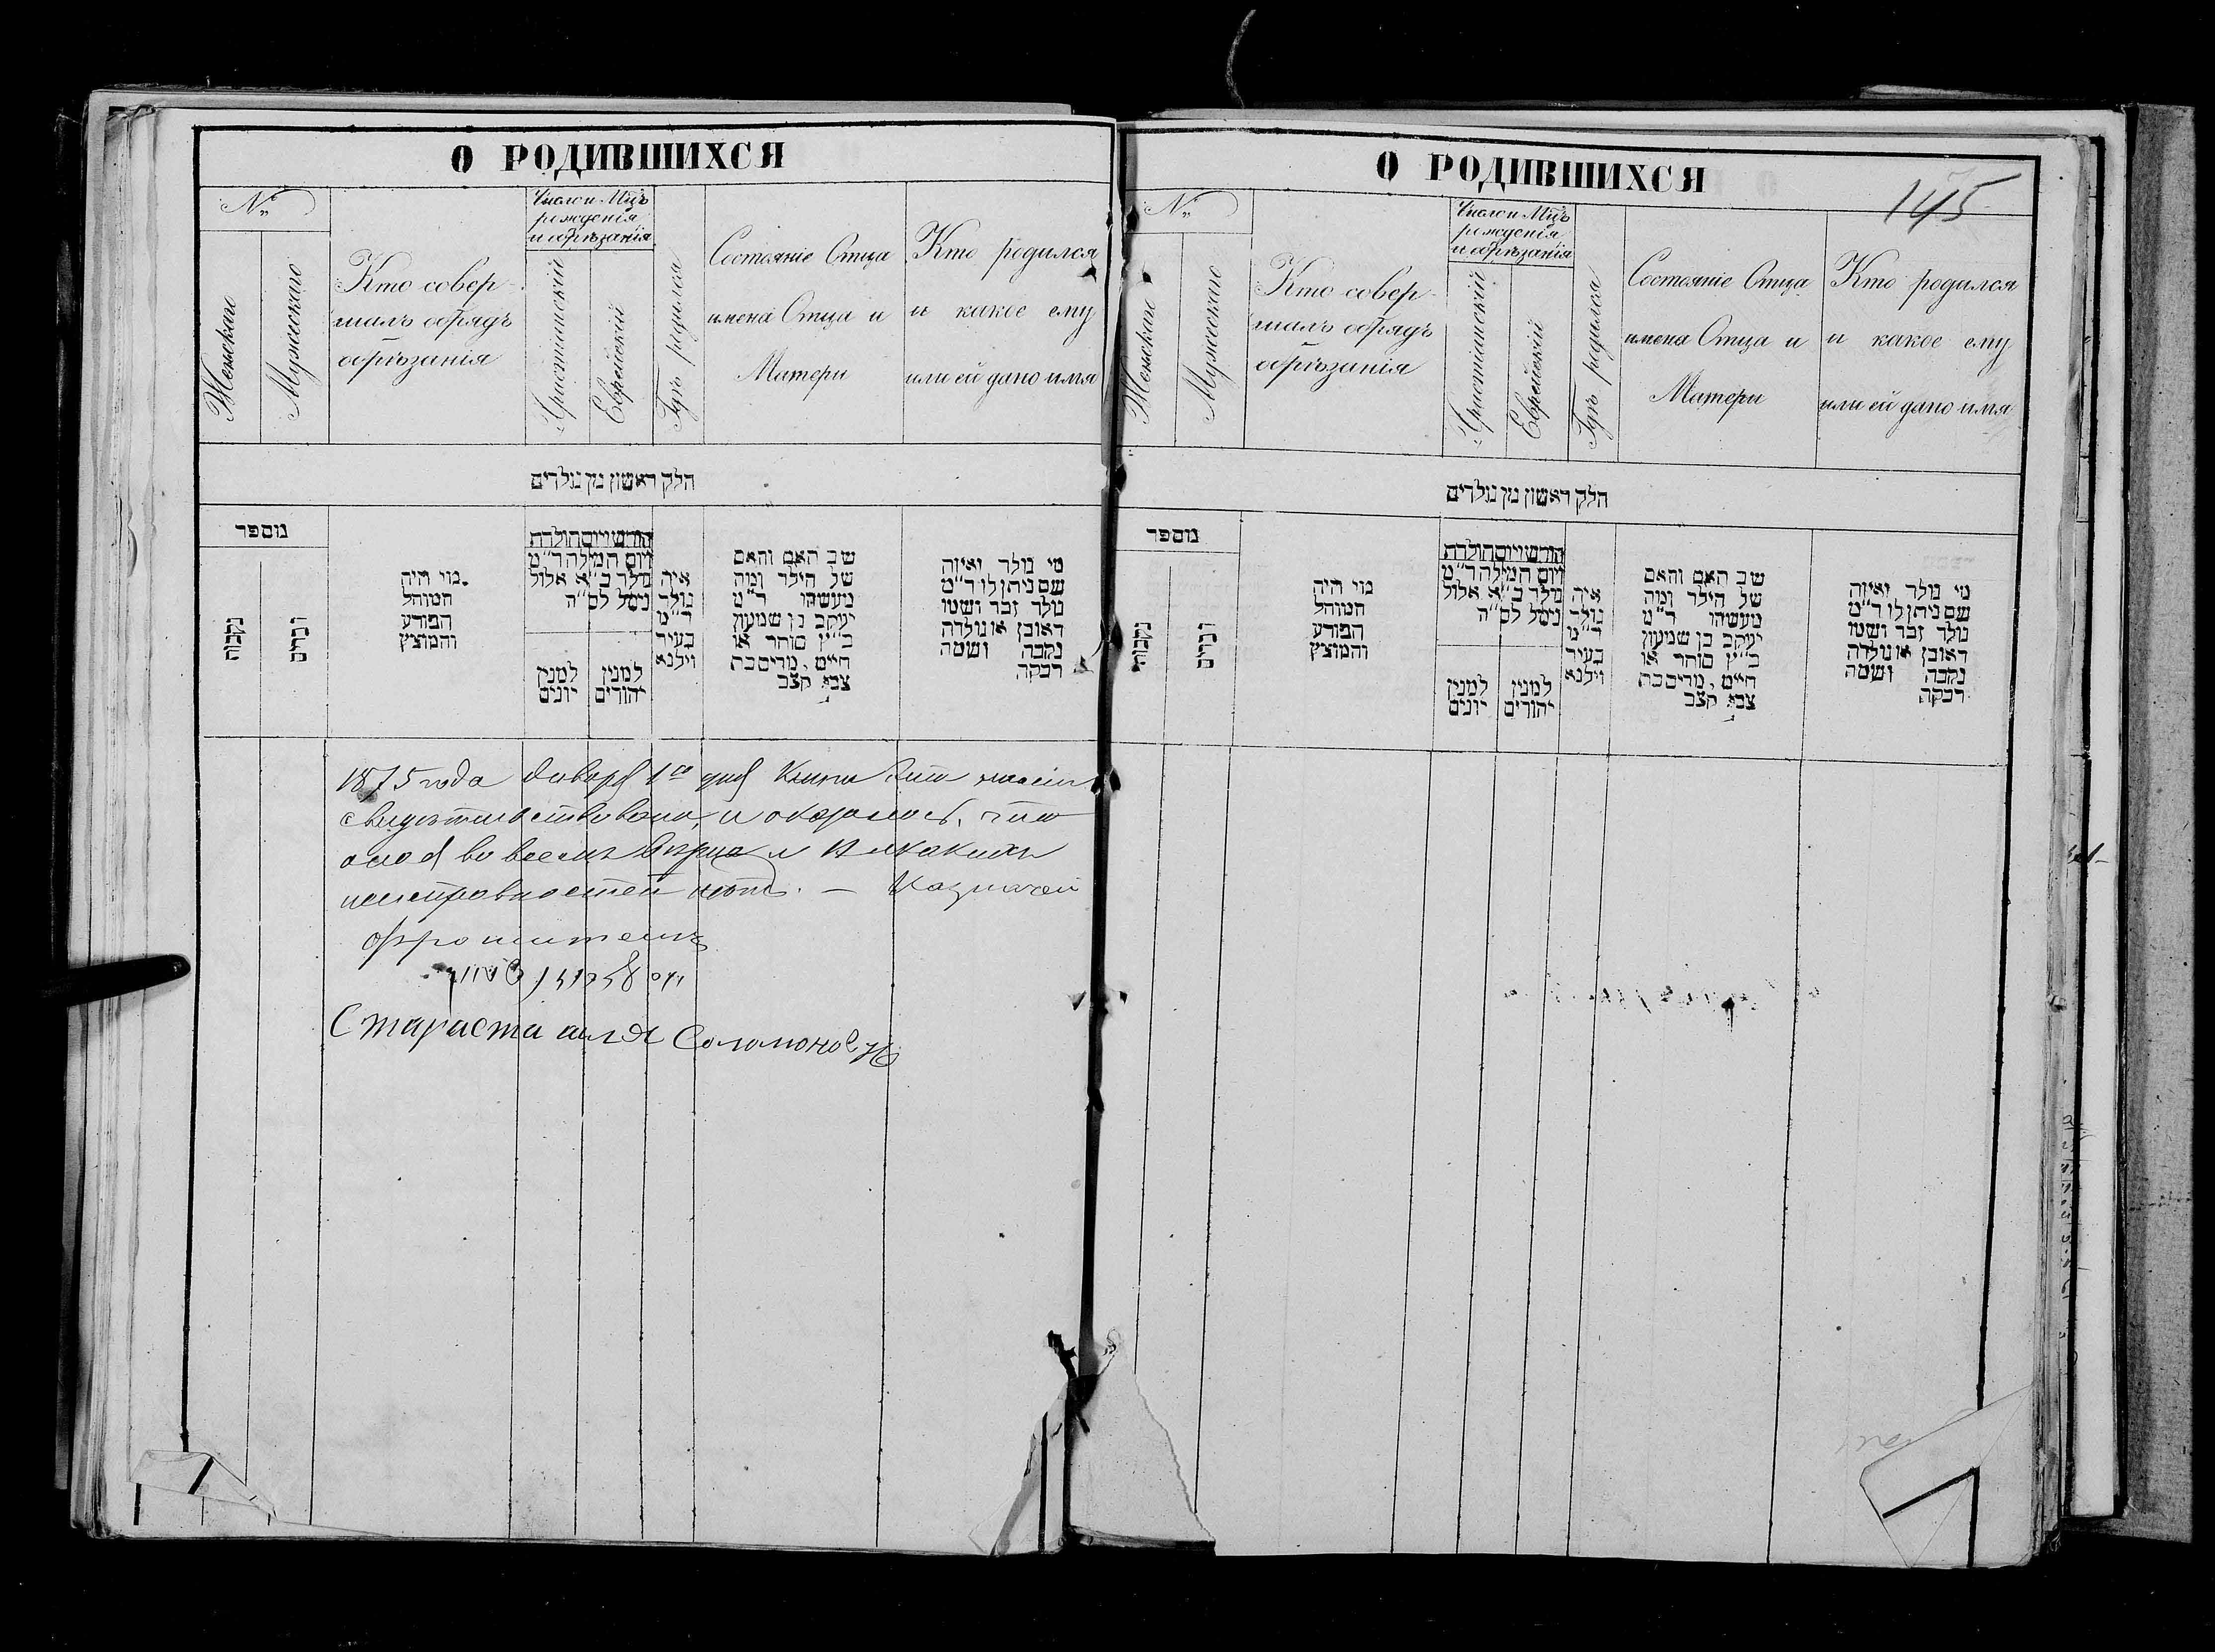 О РОДИВШИХСЯ
№
Женскаго
Мужескаго
Кто совер-
шалъ обрядъ
обрѣзанія
Число и Мцъ
рожденія
и обрѣзанія
Христіанскій
Еврейскій
Гдѣ родился
Состояніе Отца
имена Отца и
Матери
Кто родился
и какое ему
или ей дано имя
חלק ראשון מן נולדים
מספר
נקבות
זכרים
מי היה
המוהל
הפורע
והמוצץ
חודש ויום תולדת
ויום המילה ד״מ
נולד כ״א אלול
נימל לס״ה
למנין
יונים
למנין
יהודים
איה
נולד
ד״מ
בעיר
ווילנא
שם האב והאם
של הילד ומה
מעשהו ד״מ
יעקב בן שמעון
כ״ץ סוחר או
חייט, מרים בת
צבי קצב
מי נולד ואיזה
שם ניתן לו ד״מ
נולד זכר ושמו
ראובן או נולדה
נקבה ושמה
רבקה
1875 года Января 1го дня Книга эта
свидѣтельствована, и оказалось, что
она во всемъ вѣрна и никакихъ
неисправностей нѣтъ. — Казначей
Стараста
О РОДИВШИХСЯ
145
№
Женскаго
Мужескаго
Кто совер-
шалъ обрядъ
обрѣзанія
Число и Мцъ
рожденія
и обрѣзанія
Христіанскій
Еврейскій
Гдѣ родился
Состояніе Отца
имена Отца и
Матери
Кто родился
и какое ему
или ей дано имя
חלק ראשון מן נולדים
מספר
נקבות
זכרים
מי היה
המוהל
הפורע
והמוצץ
חודש ויום תולדת
ויום המילה ד״מ
נולד כ״א אלול
נימל לס״ה
למנין
יונים
למנין
יהודים
איה
נולד
ד״מ
בעיר
ווילנא
שם האב והאם
של הילד ומה
מעשהו ד״מ
יעקב בן שמעון
כ״ץ סוחר או
חייט, מרים בת
צבי קצב
מי נולד ואיזה
שם ניתן לו ד״מ
נולד זכר ושמו
ראובן או נולדה
נקבה ושמה
רבקה